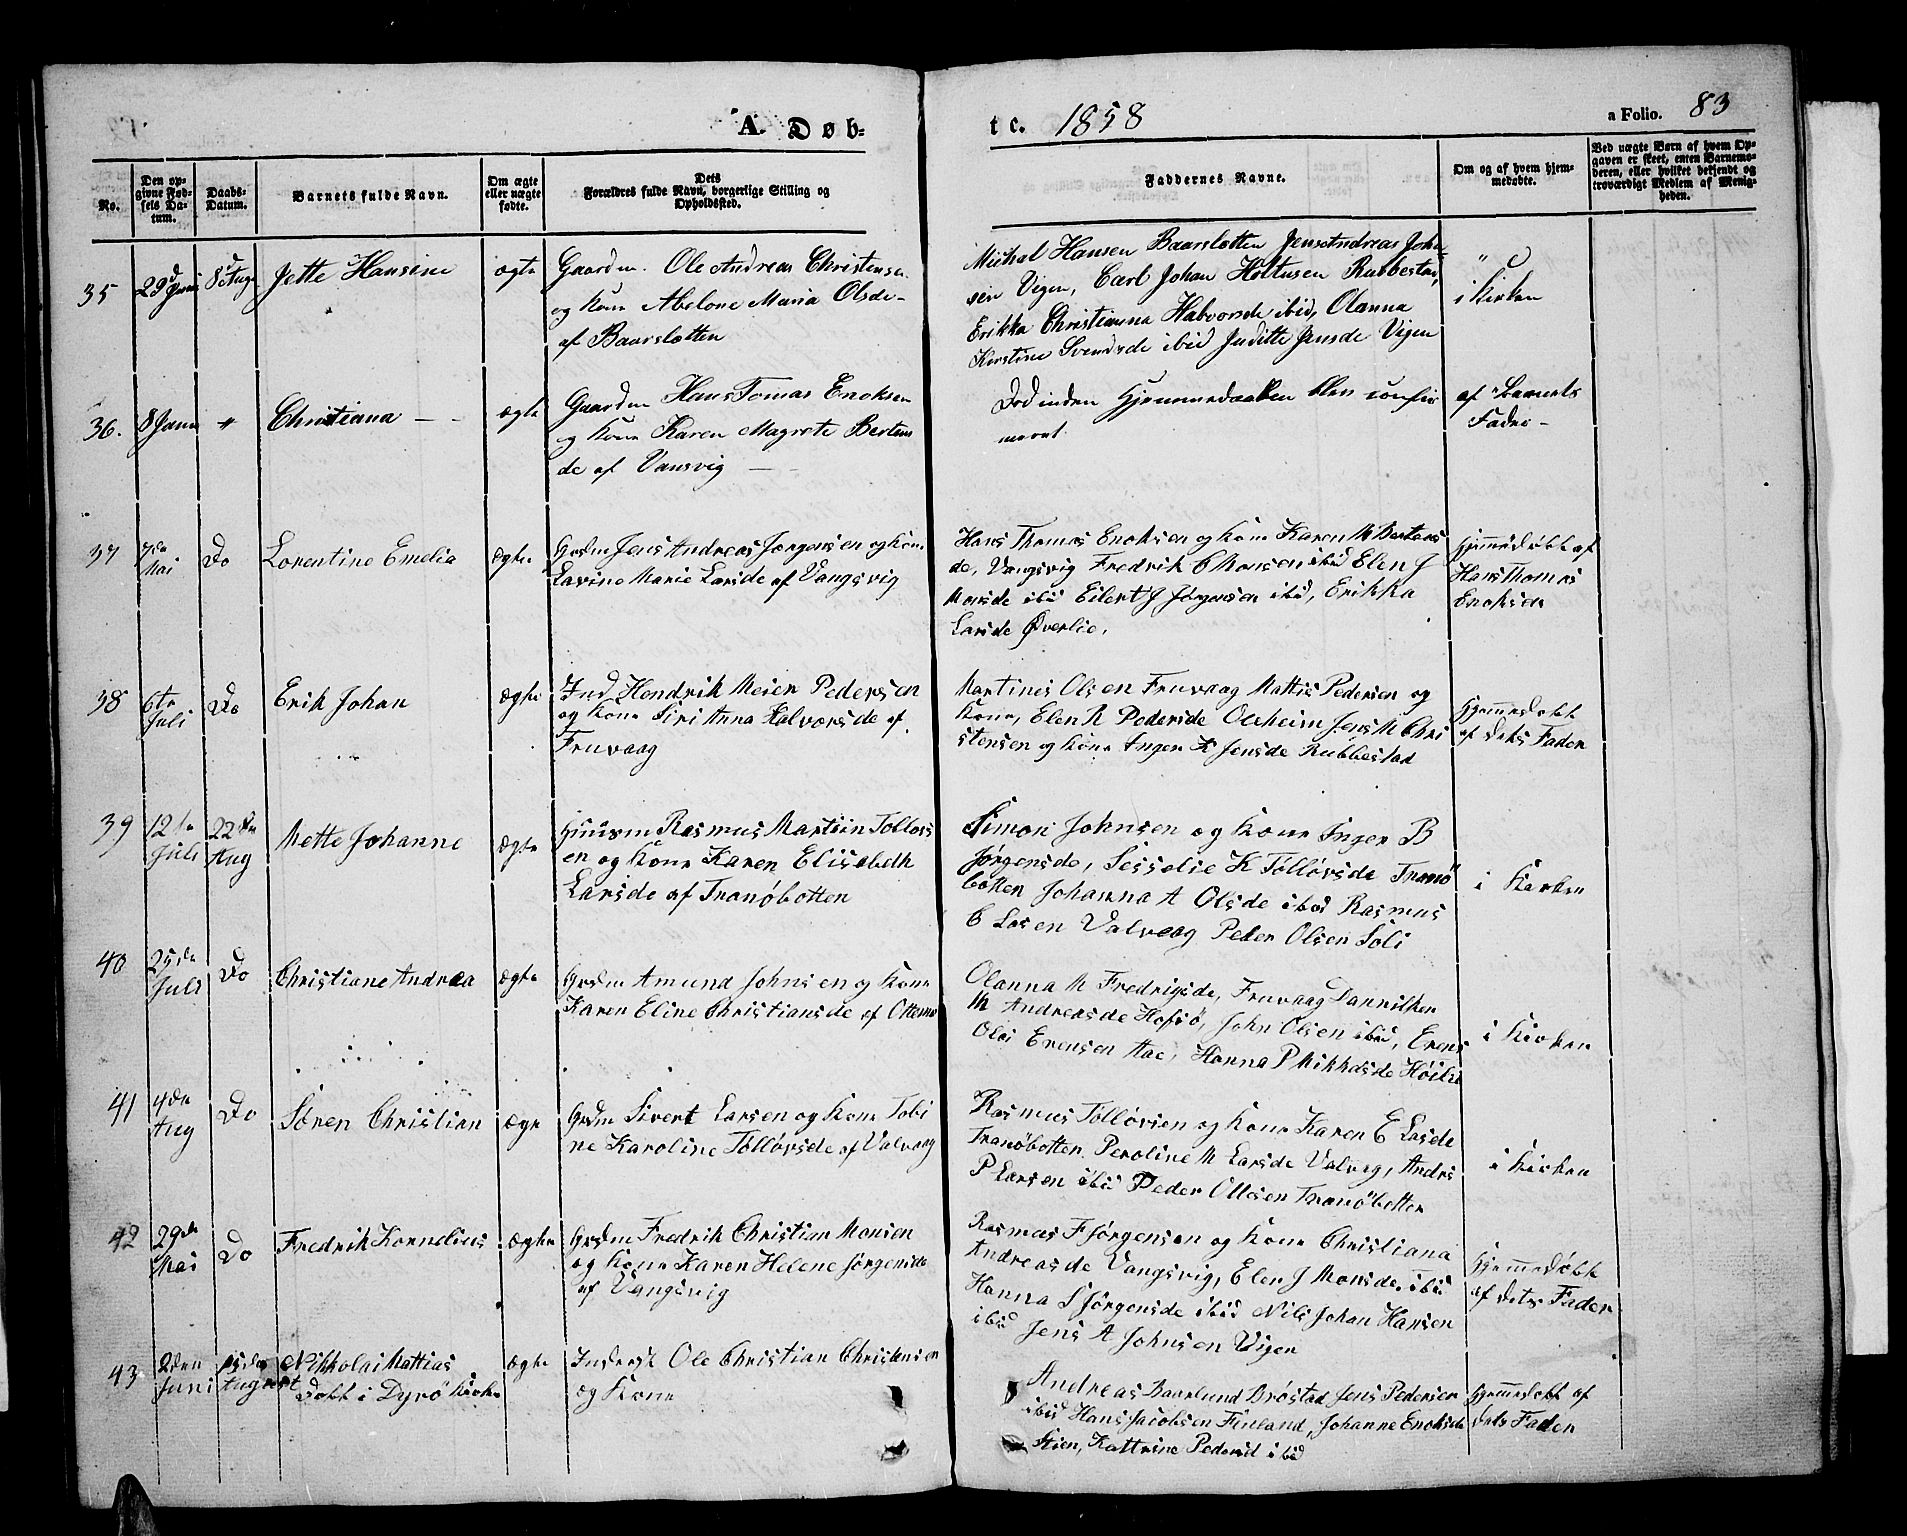 A. Døb-
te. 1858
a Folio. 83
No.
Den op-
givne Fød-
sels Da-
tum.
Daabs-
Datum.
Barnets fulde Navn.
Om ægte
eller uægte
fødte.
Dets
Forældres fulde Navn, borgerlige Stilling og
Opholdssted.
Faddernes Navne.
Om og af hvem hjem-
medøbte.
Ved uægte Børn af hvem Op-
gaven er skeet, enten Barnemo-
deren, eller hvilket bekjendt og
troværdigt Medlem af Menig-
heden.
35
29d Juni
8d Aug
Jette Hansine
ægte
Gaardm. Ole Andreas Christensen
og Kone Abelone Maria Olsd-
af Baarslotten
Michal Hansen Baarslotten Jens Andreas Johan-
sen Vigen, Carl Johan Holtusen Rubbestad,
Erikka Christianna Halvorsd ibid, Olanna
Kirstine Svendsd ibid Juditte Jensd Vigen
" i Kirken
36.
8 Janu
"
Christiana
ægte
Gaardm Hans Tomas Enoksen
og Kone Karen Magrete Bertens
de af Vansvig
Død inden Hjemmedaaben blev confir
meret
af Barnets
Fader
37
7de
Mai
Do
Lorentine Emelia
Ægte
Grdm Jens Andreas Jørgensen og Kone
Lavine Marie Larsde af Vangsvig
Hans Thomas Enoksen og Kone Karen M Bertens
de, Vangsvig Fredrik C Monsen ibid Elen J
Monsde ibid Eilert J Jørgensen ibid, Erikka
Larsde Øverlie,
Hjemmedøbt af
Hans Thomas
Enoksen
38
6te
Juli
Do
Erik Johan
Ægte
Ind Hendrik Meier Pedersen
og Kone Siri Anna Halvorsde af
Fruvaag
Martinis Olsen Fruvaag Mattis Pedersen og
Kone, Elen R Pedersde Olsheim Jens M Chri
stensen og Kone Inger K Jensde Rubbestad
Hjemmedøbt
af dets Fader
39
12te
Juli
22de
Aug
Mette Johanne
Ægte
Huusm Rasmus Martiin Tolløvs
en og Kone Karen Elisabeth
Larsde af Tranöbotten
Simon Johnsen og Kone Inger B
Jørgensde, Sesselie K Tölløvsde Tranö
botten Johanna A Olsde ibid Rasmus
C Larsen Valvaag Peder Olsen Soli
i Kirken
40
25de
Juli
Do
Christiane Andrea
Ægte
Grdm Amund Johnsen og Kone
Karen Eline Christiansde af
Olanna M Fredrigsde, Fruvaag
M Andreasde Hofsö, John Olsen ibid, Erens
Olai Erensen Aae, Hanna P Mikkelsde
i Kirken
41
4de
Aug
Do
Sören Christian
Ægte
Grdm Sivert Larsen og Kone Tobi
ne Karoline Tölløvsde af Valvaag
Rasmus Tölløvsen og Kone Karen E Larsde
Tranöbotten Peroline M Larsde Valvag, Andrs
P Larsen ibid Peder Ollsen Tranöbotten
i Kirken
42
29de
Mai
Do
Fredrik Kornelius
Ægte
Grdm Fredrik Christian Monsen
og Kone Karen Helene Jørgensde
af Vangsvig
Rasmus F Jørgensen og Kone Christiana
Andreasde Vangsvig, Elen J Monsde, ibid
Hanna S Jørgensde ibid Nils Johan Hansen
ibid Jens A Johnsen Vigen
Hjemmedøbt
af dets Fader
43
2den
Juni
15de
August
Nikkolai Mattias
Døbt i Dyrö Kirke
Ægte
Inderst Ole Christian Christensen
og Kone
Andreas Baarlund Bröstad Jens Pedersen
ibid Hans Jacobsen Finland, Johanne Enoksde
Stien, Kattrine Pedersd ibid
Hjemmedøbt af
dets Fader